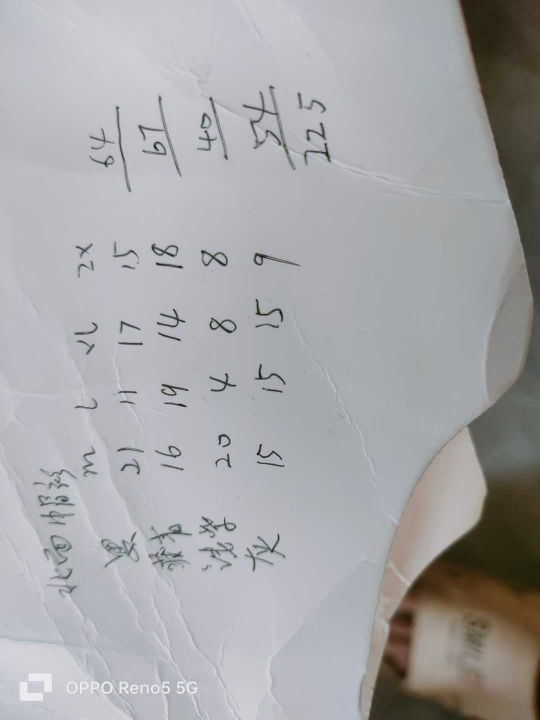 北面
m L XL 2X
黑 21 11 17 15 64
藏青 16 19 14 18 67
浅 20 4 8 8 40
灰 15 15 15 9 54
225
OPPO Reno5 5G